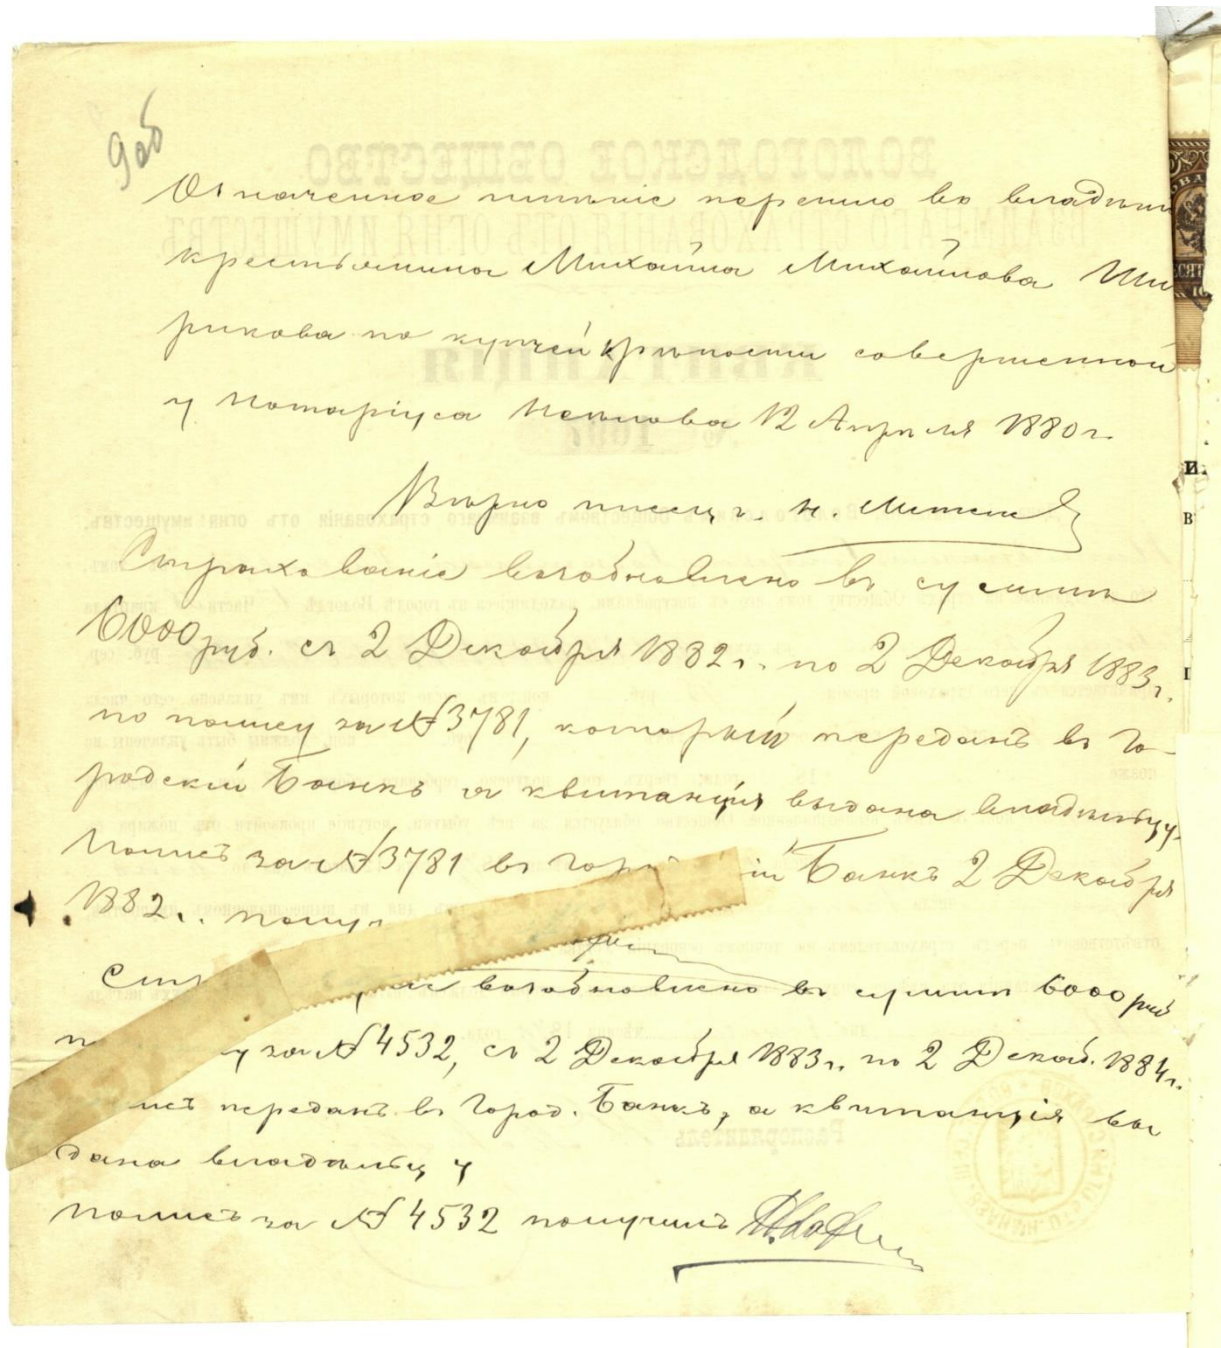 9об
Означенное имѣніе перешло во владѣніе
крестьянина Михаила Михайлова Ши
рикова по купчей крѣпости совершенной
у Нотаріуса Попова 12 Апрѣля 1880 г.
Вѣрно писецъ
Страхованіе возобновлено въ суммѣ
6000 руб. съ 2 Декабря 1882 г. по 2 Декабря 1883 г.
по полису за № 3781, который переданъ въ Го-
родскій Банкъ а квитанція выдана владѣльцу.
Полисъ за № 3781 въ Гор ій Банкъ 2 Декабря
1882 г. полу
Стр возобновлено въ суммѣ 6000 руб
п у за № 4532, съ 2 Декабря 1883 г. по 2 Декаб. 1884 г.
лисъ переданъ въ Город. Банкъ, а квитанція вы
дана владѣльцу
Полисъ за № 4532 получилъ